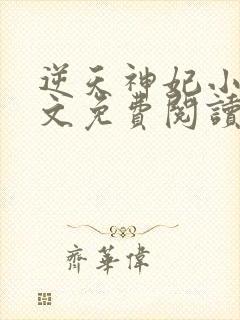 逆天神妃小
文免費閱讀
齊華偉